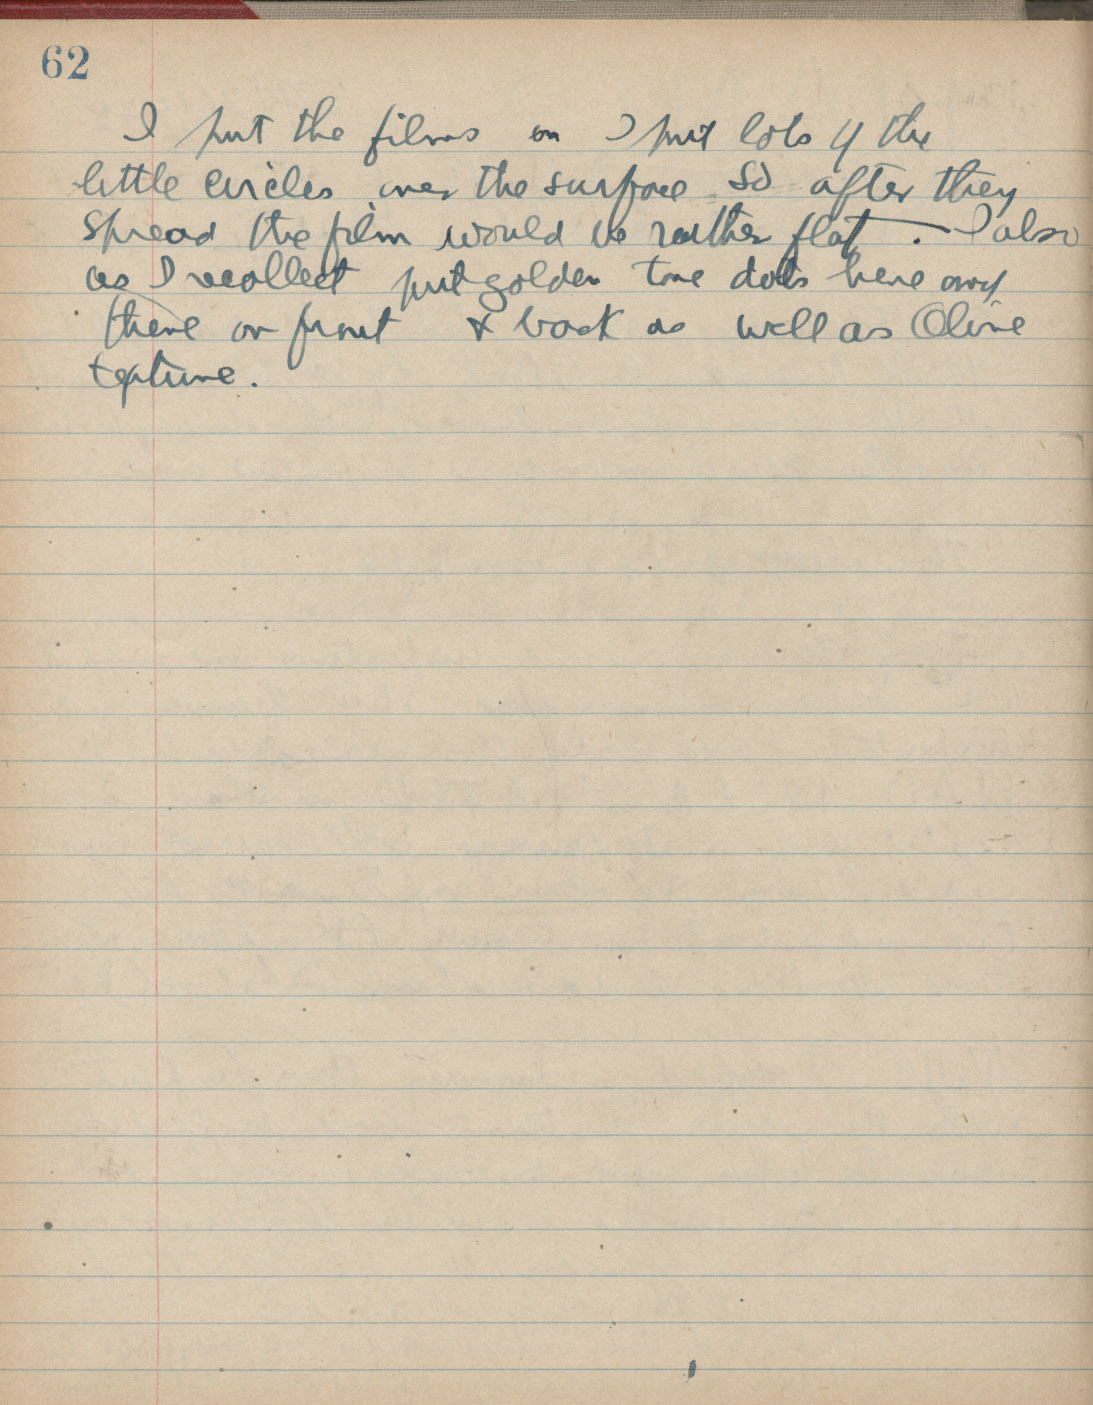 62
I put the films on I put lots of the
little circles over the surface so after they
spread the film would be rather flat. I also
as I recollect put golden tone dots here and
there on front & back as well as Olive
texture.